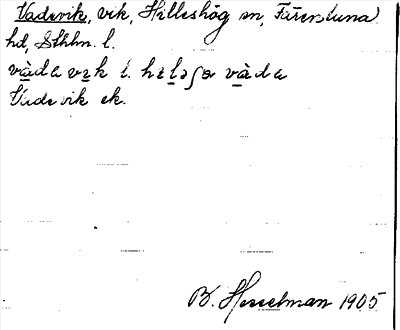 Vadevik, vik, Hilleshög sn, Färentuna
hd, Sthlm. l.
vàda vɪk l. hɪləʃø vàda
Vadevik ek.
B. Hesselman 1905